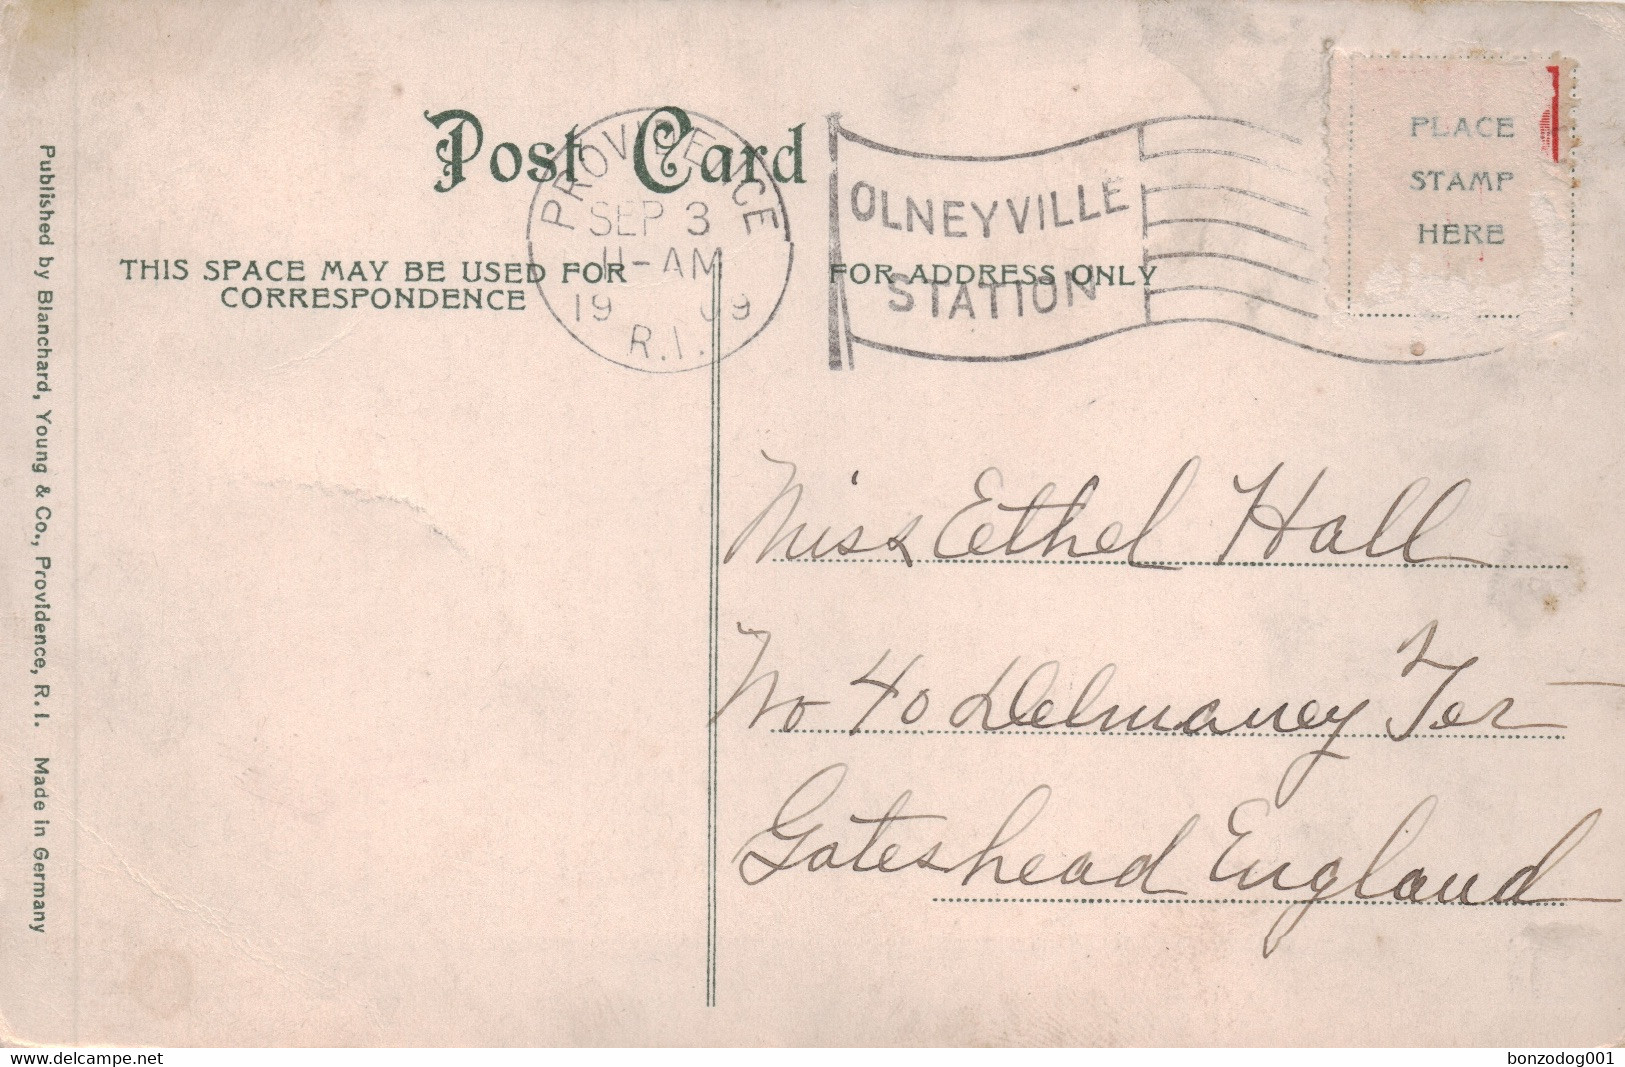 Post Card
PROVIDENCE
SEP 3
11-AM
1909
R.I.
OLNEYVILLE
STATION
PLACE
STAMP
HERE
THIS SPACE MAY BE USED FOR
CORRESPONDENCE
FOR ADDRESS ONLY
Miss Ethel Hall
No 40 Delmaney Ter
Gateshead England
Published by Blanchard, Young & Co., Providence, R. I. Made in Germany
www.delcampe.net
bonzodog001